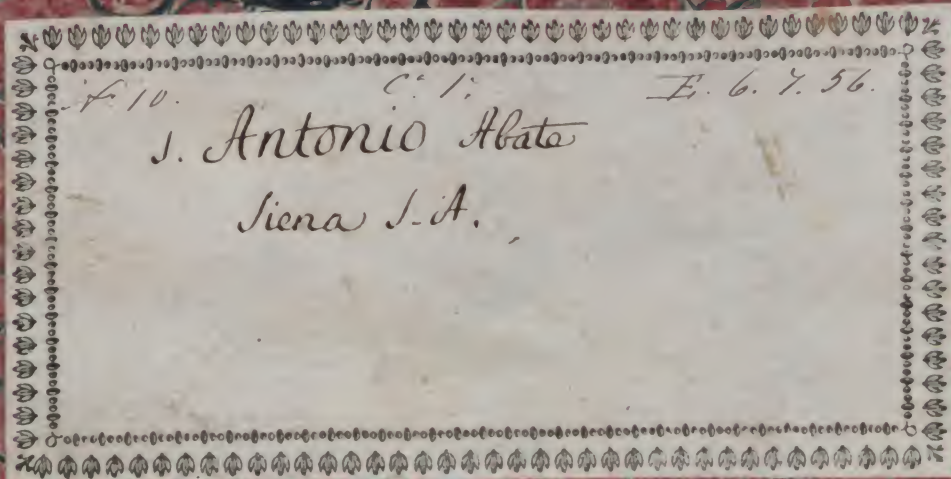 N. 10. C. 1. E. 6. 7. 56.
S. Antonio Abate
Siena S. A.